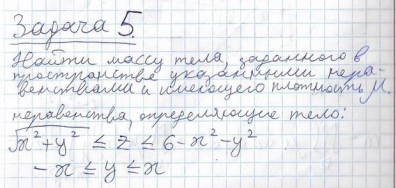 Задача 5.
Найти массу тела, заданного в
пространстве указанными нера-
венствами и имеющего плотность μ.
неравенства, определяющие тело:
√x²+y² ≤ z ≤ 6-x²-y²
-x ≤ y ≤ x